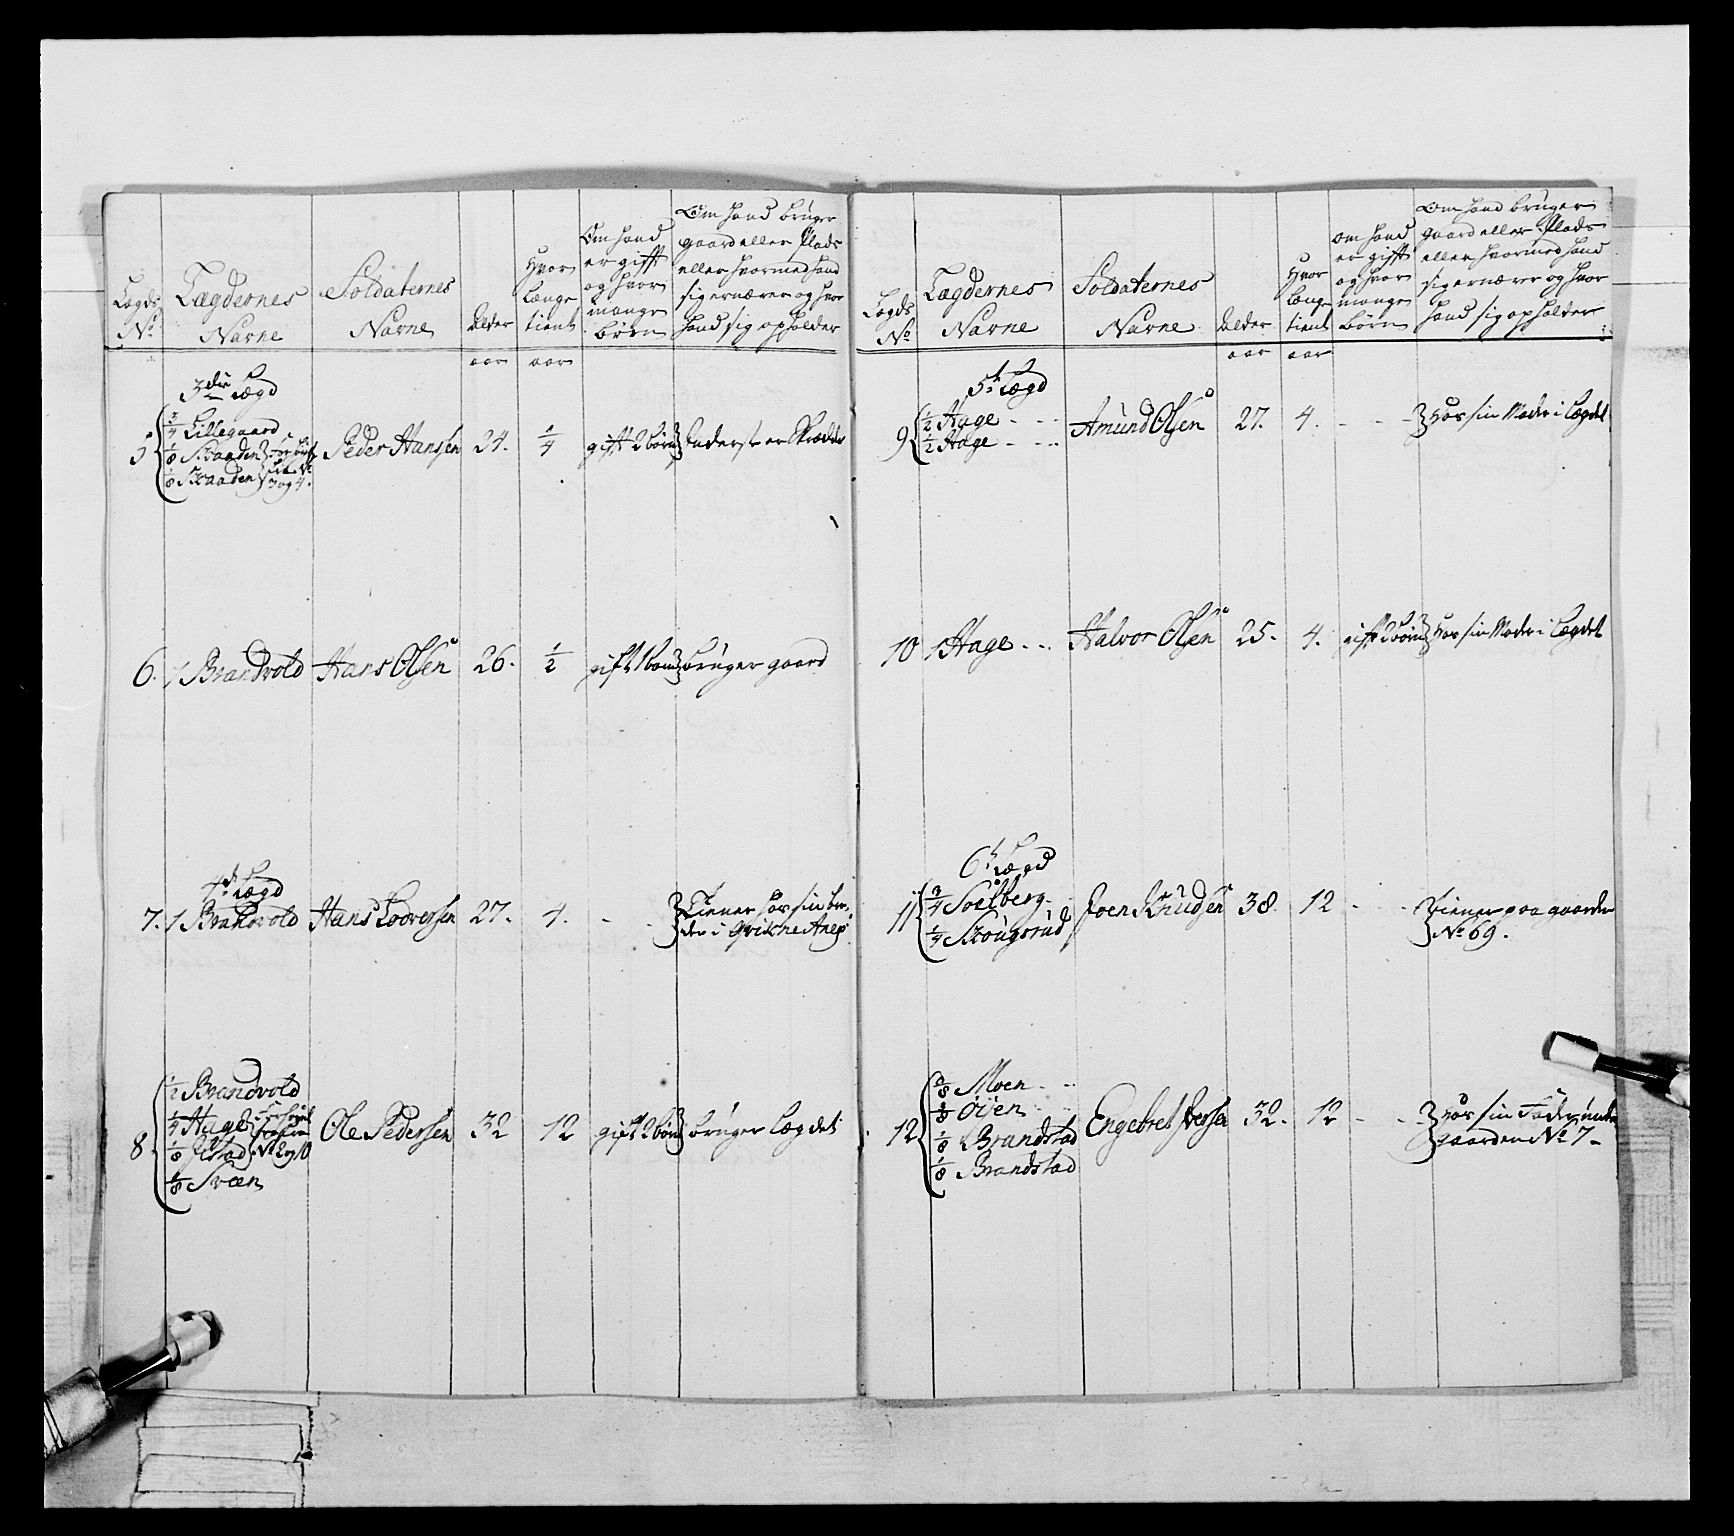 Lægds No
Lægdernes Navne
Soldaternes Navne
Alder
Hvor længe tient
Om hand er gift og hvor mange børn
Om hand bruger gaard eller Plads eller hvormed hand sig ernærer og hvor hand sig opholder
aar aar
3die Lægd
5 3/4 Lillegaard
1/8 Skaaden
1/8 Skaaden
3 og 4.
Peder Hansen 24. 1/4 gift 2 børn Inderst er Skræder
6. 1 Brandvold Hans Olsen 26. 1/2 gift 1 barn bruger gaard
4de Lægd
7. 1 Brandvold Hans Lodversen 27. 4. - - Tiener hos sin bro-
der i Grikne Anex
8 1/2 Brandvold
1/4 Hage
1/8 Ilstad No 2 og 10
1/8 Sveen
Ole Pedersen 32 12 gift 2 børn bruger Lægdet
Lægds No
Lægdernes Navne
Soldaternes Navne
Alder
Hvor længe tient
Om hand er gift og hvor mange børn
Om hand bruger gaard eller Plads eller hvormed hand sig ernærer og hvor hand sig opholder
aar aar
5te Lægd
9 1/2 Hage - - -
1/2 Hage - - -
Amund Olsen 27. 4. - - - Hos sin Moder i Lægdet
10 1 Hage - - Halvor Olsen 25. 4. gift 2 børn Hos sin Moder i Lægdet
6te Lægd
11 3/4 Soelberg -
1/4 Skougsrud
Joen Knudsen 38. 12 - - Tiener paa gaarden
No 69.
12 3/8 Moen - -
3/8 Øien - -
1/8 Brandstad
1/8 Brandstad
Engebret Iversen 32. 12 - - Hos sin Fader under
gaarden No 7 -